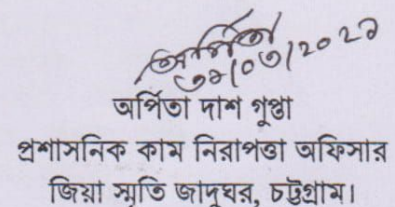 অর্পিতা
অর্পিতা দাশ গুপ্তা
প্রশাসনিক কাম নিরাপত্তা অফিসার
জিয়া স্মৃতি জাদুঘর, চট্টগ্রাম।